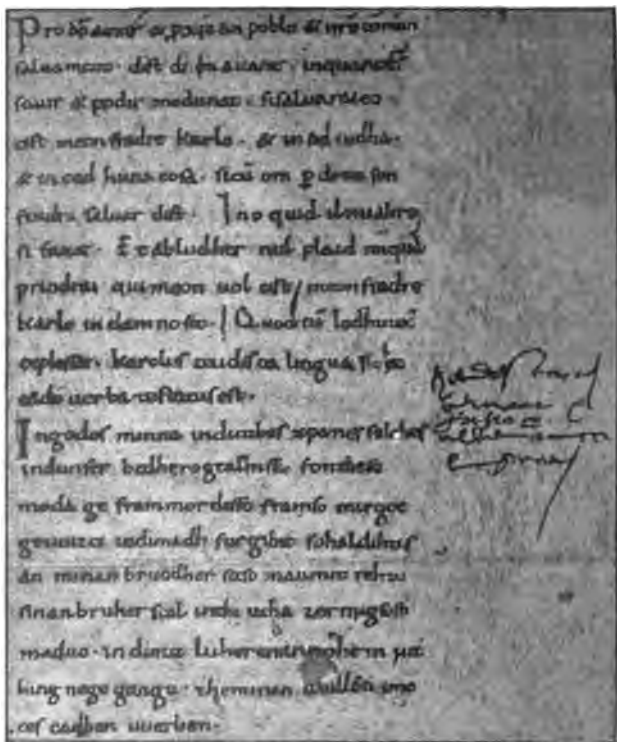 Pro dō amur & p xp̄ian poblo & nrō cōmun
saluament. dist di en auant. inquant dś
sauir & podir medunat. sisaluaraieo.
cist meon fradre Karlo. & in ad iudha.
& in cad huna cosa. sicū om p dreit son
fradra saluar dist. Ino quid il mialtre
si faz&. Et abludher nul plaid nūquā
prindrai qui meon uol cist meon fradre
Karle in damno sit. Quod cū lodhuuic
explesset. karolus teudisca lingua sic hęc
eadē uerba testatus est.
In godes minna induthes xpanes folches
indunser bedhero gealtnissi. fon thesemo
moda ge frammordesso framso mirgot
geuuizci indimadh furgibit sohaldihtes
an minan bruodher soso manmit rehtu
sinan bruher scal inthi utha zermigsoso
maduo. indimit luheren innohein iut
hing nege gango. theminan uuillon imo
ces cadhen uuerhen.